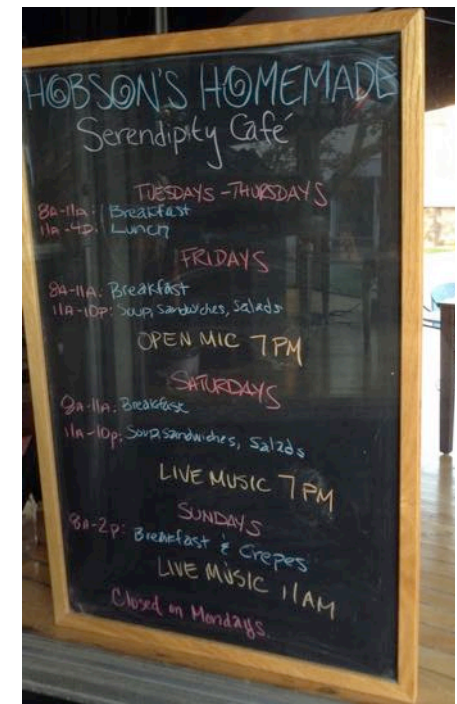 HOBSON'S HOMEMADE
Serendipity Café
TUESDAYS - THURSDAYS
8A-11A: Breakfast
11A-4P: Lunch
FRIDAYS
8A-11A: Breakfast
11A-10P: Soup, Sandwiches, Salads
OPEN MIC 7PM
SATURDAYS
8A-11A: Breakfast
11A-10P: Soup, Sandwiches, Salads
LIVE MUSIC 7PM
SUNDAYS
8A-2P: Breakfast & Crepes
LIVE MUSIC 11AM
Closed on Mondays.